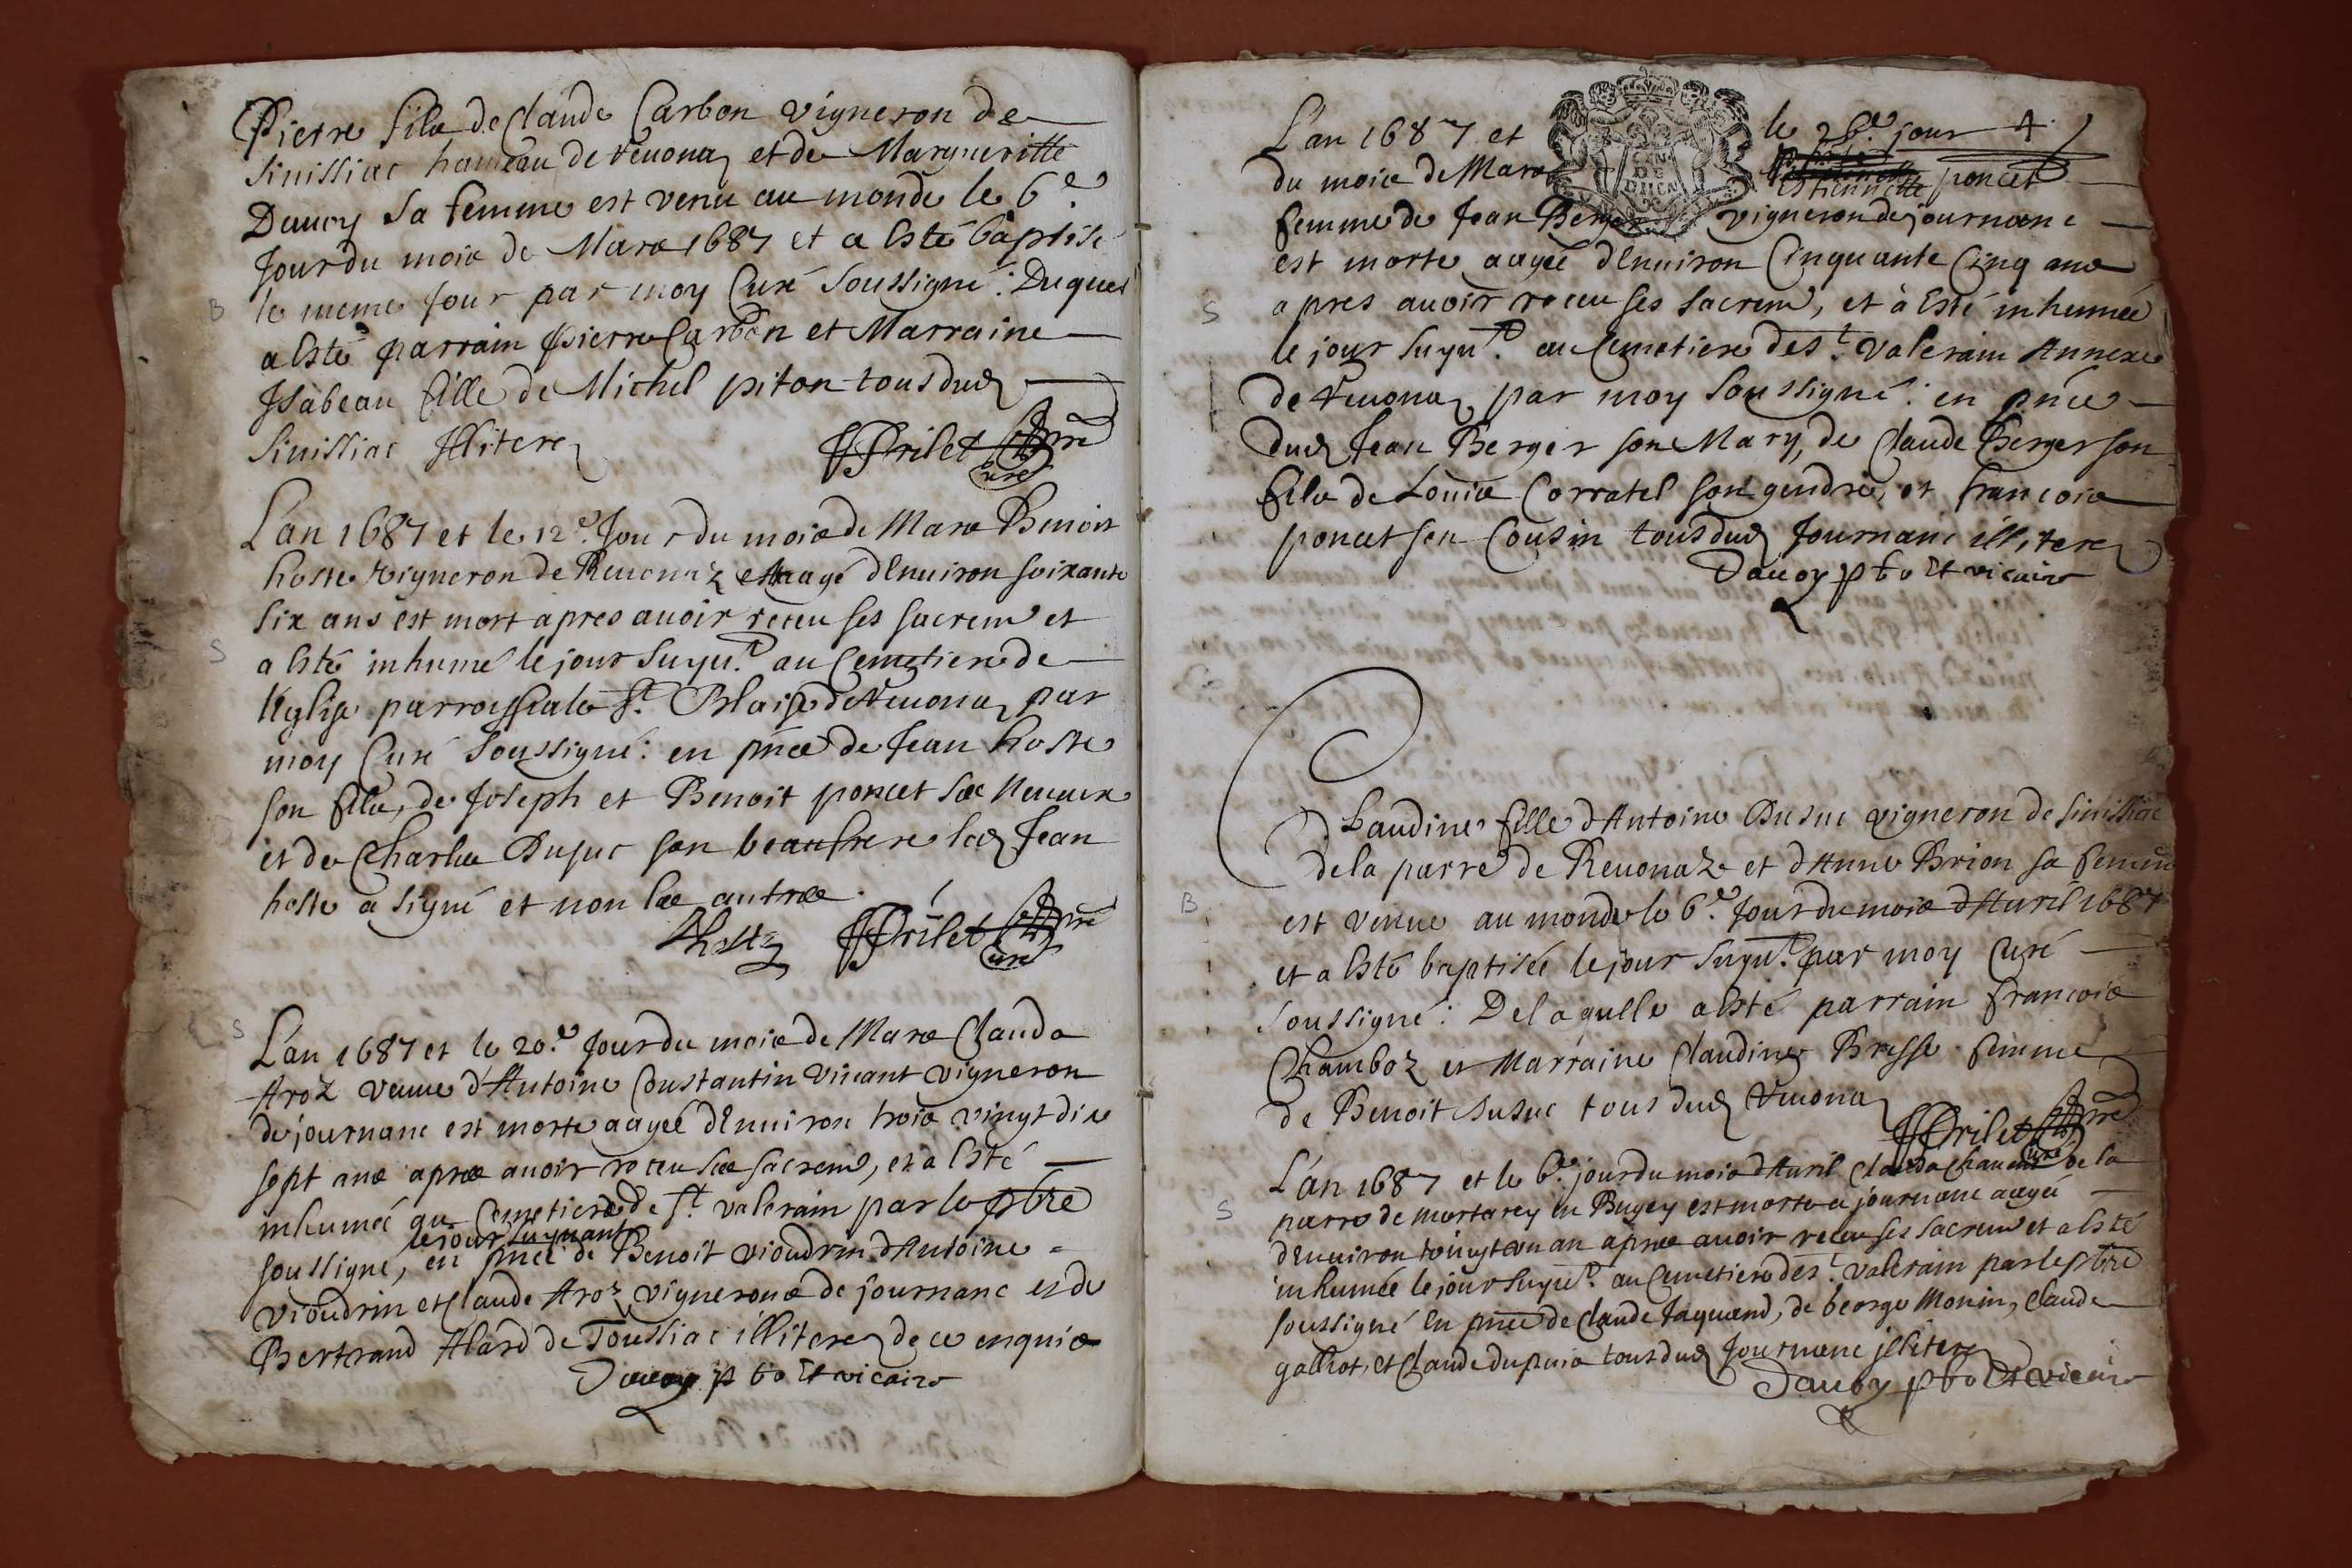 Pierre fils de Claude Carbon vigneron de
Sinissiac hameau de Reuonaz et de Margueritte
Dauoy sa femme est venu au monde le 6.e
Jour du mois de Mars 1687 et a Esté baptisé
B le meme Jour par moy Curé Soussigné: Duquel
a Esté parrain Pierre Carbon et Marraine
Isabeau fille de Michel piton tous dud
Sinissiac Illiterez
FPrilet pre
Curé
L'an 1687 et le 12.e Jour du mois de Mars Benoit
hoste vigneron de Reuonnaz aagé d'Enuiron soixante
Six ans est mort apres auoir receu ses sacrem et
S a Esté inhumé le jour Suyu.t au Cemetiere de
l'Eglise parroissiale S.t Blaise de Reuonaz par
moy Curé Soussigné: en pnce de Jean hoste
son fils, de Joseph et Benoit poncet ses Neueux
et de Charles Dusuc son beaufrere led Jean
hoste a signé et non les autres.
Jhoste FPrilet pre
Curé
S L'an 1687 et le 20.e Jour du mois de Mars Clauda
Aroz veuue d'Antoine Constantin viuant vigneron
de journanc est morte aagée d'Enuiron trois vingt dix
sept ans apres auoir receu ses sacrem, et a Esté
inhumée au Cemetiere de S.t valerain par le pbre
le jour suyuant
soussigné, en pnce de Benoit vioudrin d'Antoine
vioudrin et Claude Aroz vignerons de journanc et de
Bertrand Alard de Toussiac illiterez de ce enquis
Dauoy pbr et vicaire
L'an 1687 et le 26.e jour 4.
CEN
DE
du mois de Mars Estiennette poncet
femme de Jean Berger vigneron de journanc
est morte aagée d'Enuiron Cinquante Cinq ans
S apres auoir receu ses sacrem, et à Esté inhumée
le jour Suyu.t au Cemetiere de S.t valerain Annexe
de Reuonaz par moy Soussigné: en pnce
dud Jean Berger son Mary, de Claude Berger son
fils de Loüis Corratel son gendre, et francois
poncet son Cousin tous dud Journanc illiterez
Dauoy pbr et vicaire
Claudine fille d'Antoine Dusuc vigneron de Sinissiac
de la parre de Reuonaz et d'Anne Brion sa femme
B est venue au monde le 6.e Jour du mois d'Auril 1687
et a Esté baptisée le jour Suyu.t par moy Curé
soussigné: De laquelle a Esté parrain francois
Chamboz et Marraine Claudine Bresse femme
de Benoit Dusuc tous dud Reuonaz
FPrilet pre
Curé
L'an 1687 et le 6.e jour du mois d'Auril Clauda de la
S parre de Mortarey en Bugey est morte a journanc aagée
d'Enuiron vingt un an apres auoir receu ses sacrem et a Esté
inhumée le jour Suyu.t au Cemetiere de S.t valerain par le pbre
soussigné En pnce de Claude taquand, de George Monin, Claude
galliot, et Claude dupuis tous dud Journanc illiterez
Dauoy pbr et vicaire